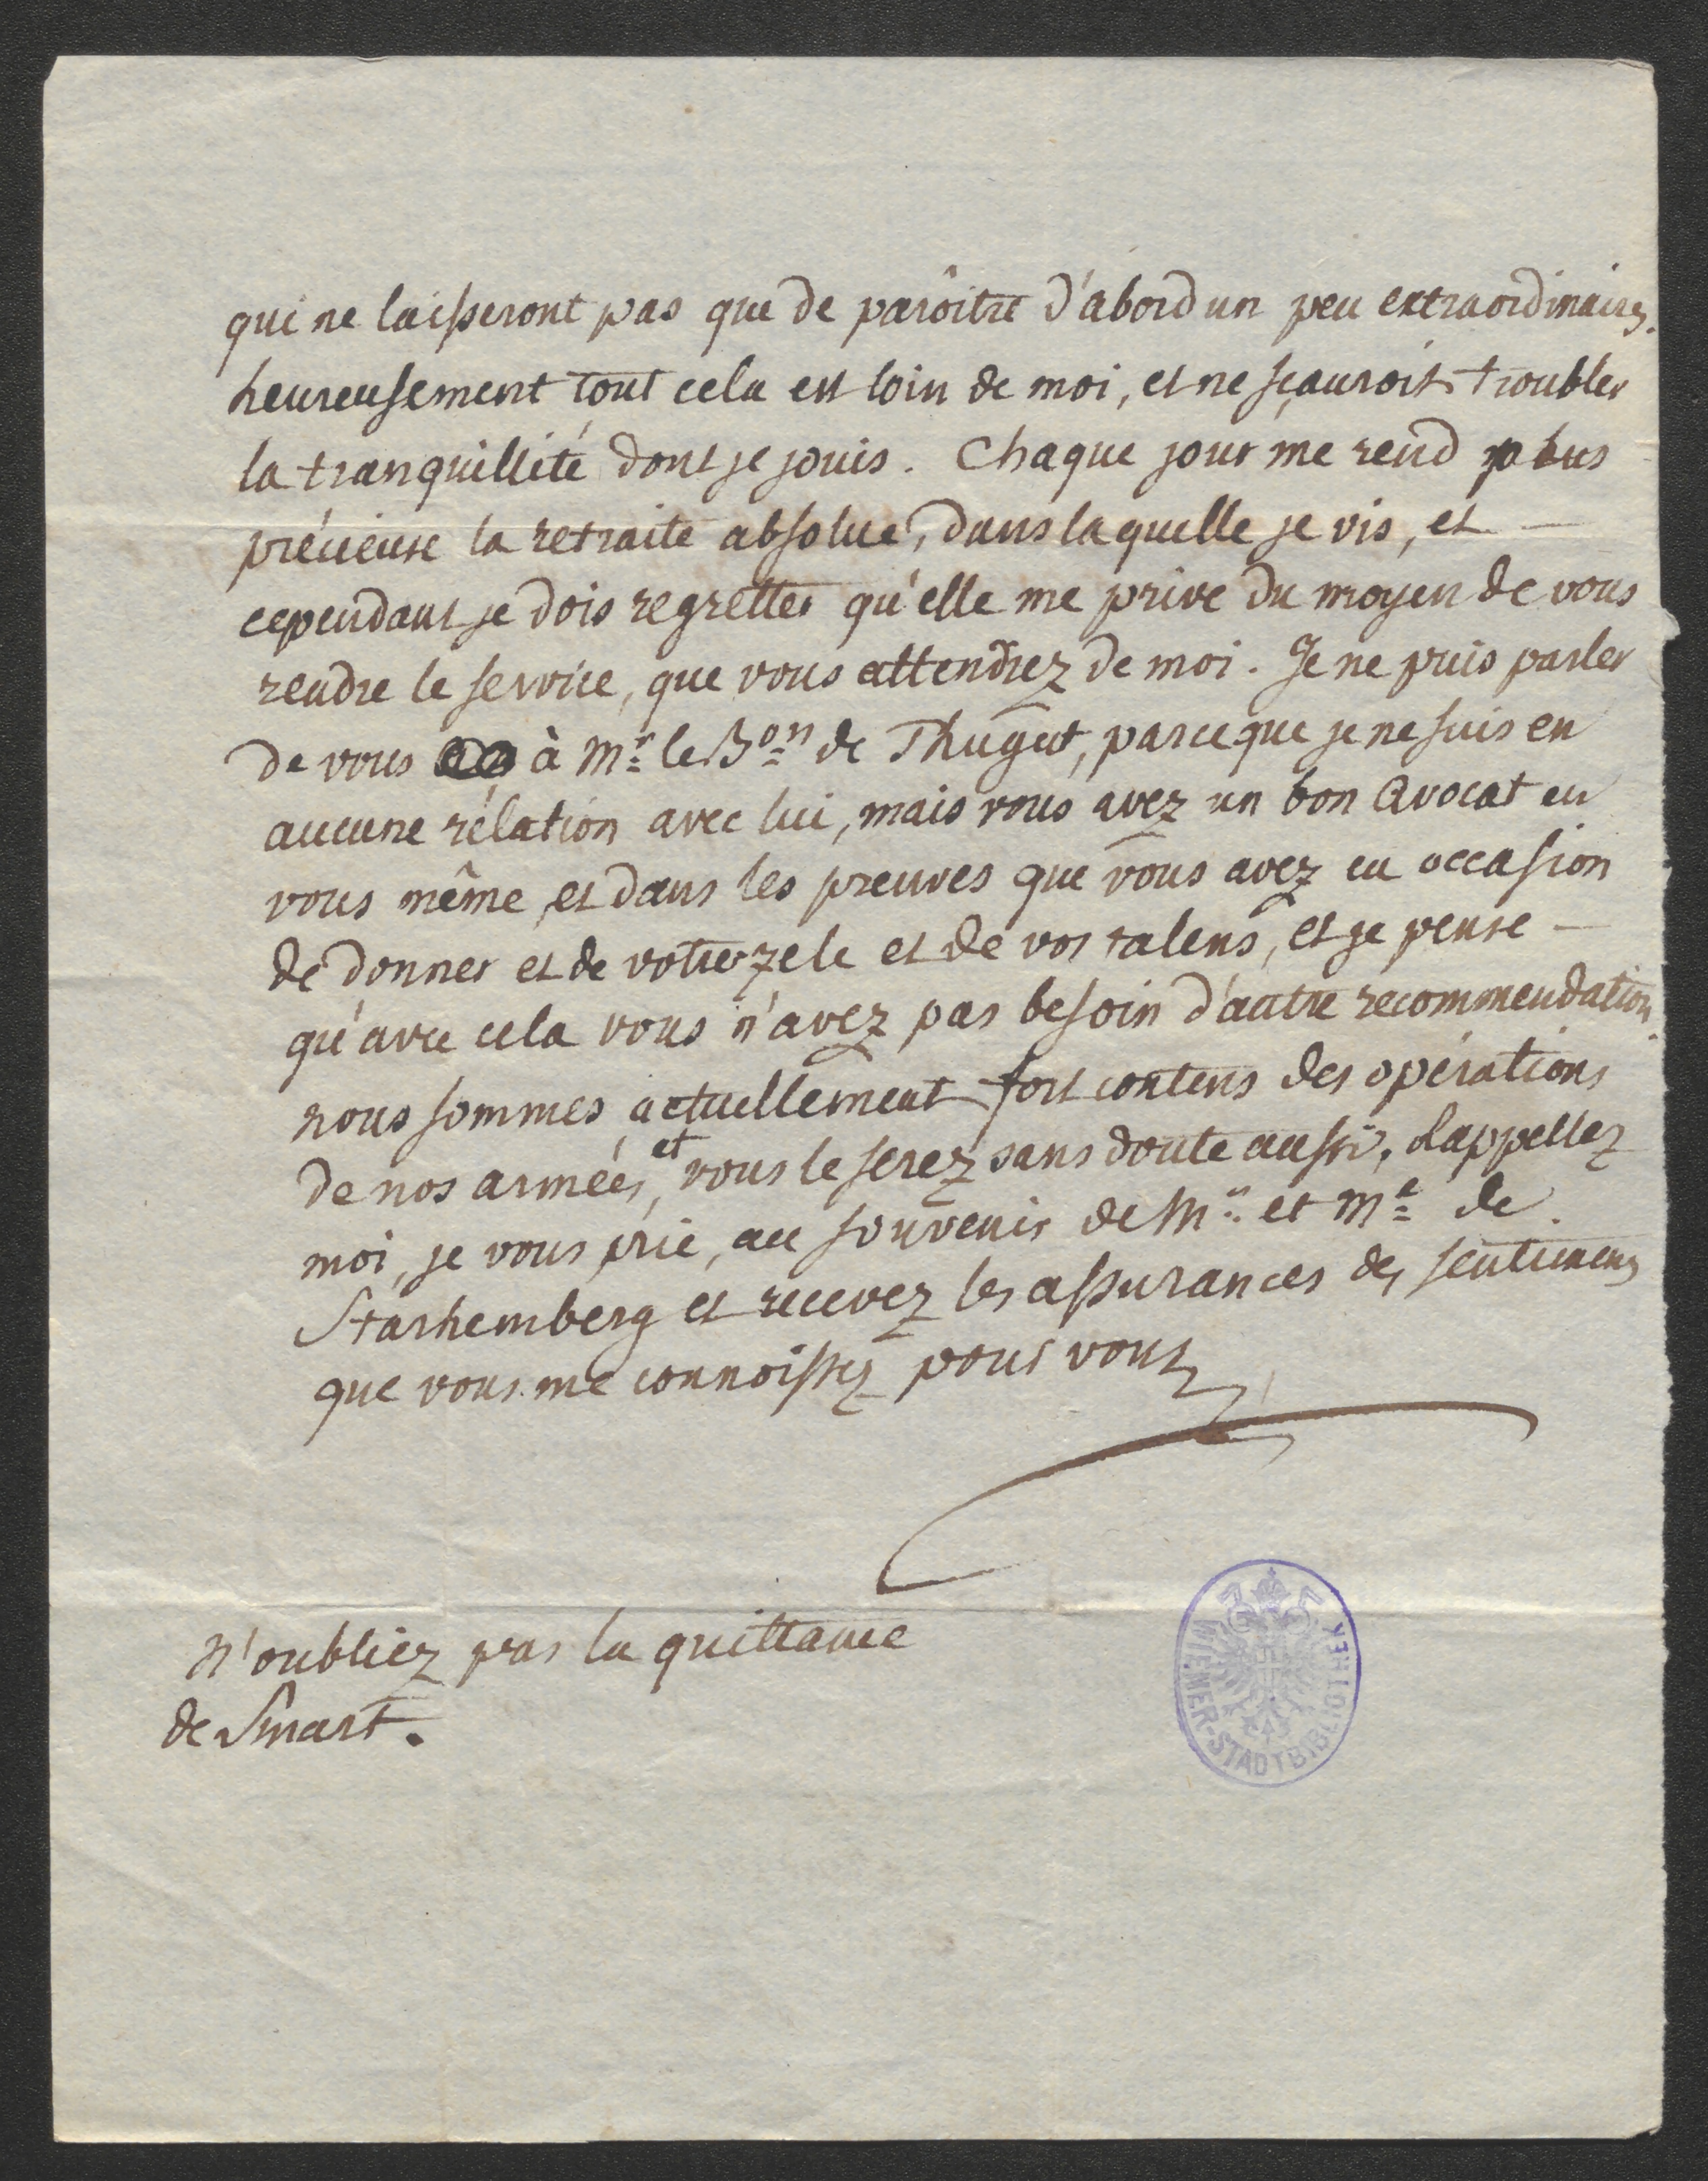 qui ne laisseront pas que de parôitre d'abord un peu extraordinaires.
heureusement tout cela est loin de moi, et ne sçauroit troubler
la tranquillité dont je jouis. Chaque jour me rend plus
précieuse la retraite absolue, dans laquelle je vis, et —
cependant je dois regretter qu'elle me prive du moyen de vous
rendre le service, que vous attendrez de moi. Je ne puis parler
de vous à Mr. le Bon. de Thugut, parceque je ne suis en
aucune rélation avec lui, mais vous avez un bon Avocat en
vous même, et dans les preuves que vous avez eu occasion
de donner et de votre zele et de vos talens, et je pense —
qu'avec cela vous n'avez pas besoin d'autre recommendation.
nous sommes actuellement fort contens des opérations
de nos armées, et vous le serez sans doute aussi. Rappellez
moi, je vous prie, au souvenir de Mr. et Me. de
Starhemberg et recevez les assurances des sentimens
que vous me connoissez pour vous
N'oubliez pas la quittance
de Smart.
WIENER-STADTBIBLIOTHEK